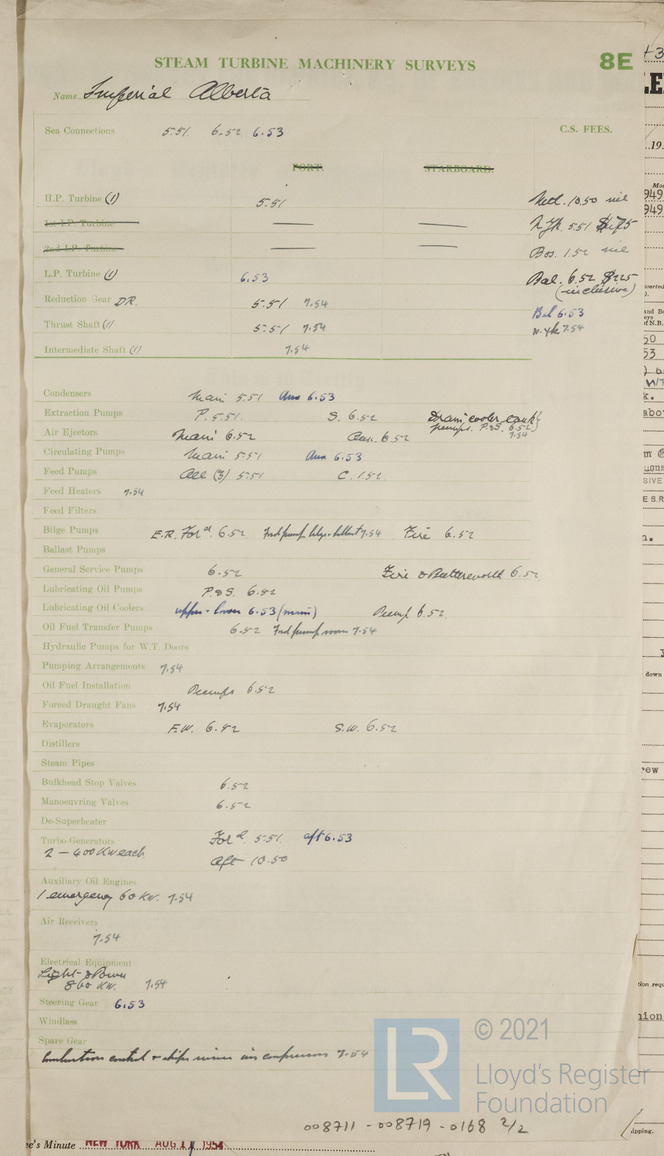 STEAM TURBINE MACHINERY SURVEYS 8E
Name Imperial Alberta
Sea Connections 5.51 6.52 6.53 C.S. FEES.
PORT. STARBOARD.
H.P. Turbine (1) 5.51 10.50 nil
1st I.P. Turbine N.Yk 5.51 $175
2nd I.P. Turbine Bos. 1.52 nil
L.P. Turbine (1) 6.53 Bal. 6.52 $225
(inclusive)
Reduction Gear DR. 5.51 7.54 Bal 6.53
Thrust Shaft (1) 5.51 7.54 N.Yk 7.54
Intermediate Shaft (1) 7.54
Condensers Main 5.51 Aux 6.53
Extraction Pumps P. 5.51. S. 6.52 Drain cooler
pumps. P.&S. 6.52
7.54
Air Ejectors Main 6.52 Aux. 6.52
Circulating Pumps Main 5.51 Aux 6.53
Feed Pumps All (3) 5.51 C. 1.52
Feed Heaters 7.54
Feed Filters
Bilge Pumps E.R. Ford 6.52 Ford pump bilge & ballast 7.54 Fire 6.52
Ballast Pumps
General Service Pumps 6.52 Fire & Butterworth 6.52
Lubricating Oil Pumps P&S. 6.52
Lubricating Oil Coolers upper & lower 6.53 (main) Pump 6.52
Oil Fuel Transfer Pumps 6.52 Ford pump room 7.54
Hydraulic Pumps for W.T. Doors
Pumping Arrangements 7.54
Oil Fuel Installation Pumps 6.52
Forced Draught Fans 7.54
Evaporators F.W. 6.52 S.W. 6.52
Distillers
Steam Pipes
Bulkhead Stop Valves 6.52
Manoeuvring Valves 6.52
De-Superheater
Turbo-Generators Ford 5.51. aft 6.53
2 – 400 KW each Aft 10.50
Auxiliary Oil Engines
1 emergency 60 KW. 7.54
Air Receivers
7.54
Electrical Equipment
Light & Power
860 KW. 7.54
Steering Gear 6.53
Windlass
Spare Gear
Combustion control & ships air compressors 7.54
© 2021
LR
Lloyd's Register
Foundation
008711 - 008719 - 0168 2/2
Minute NEW YORK AUG 11 1954